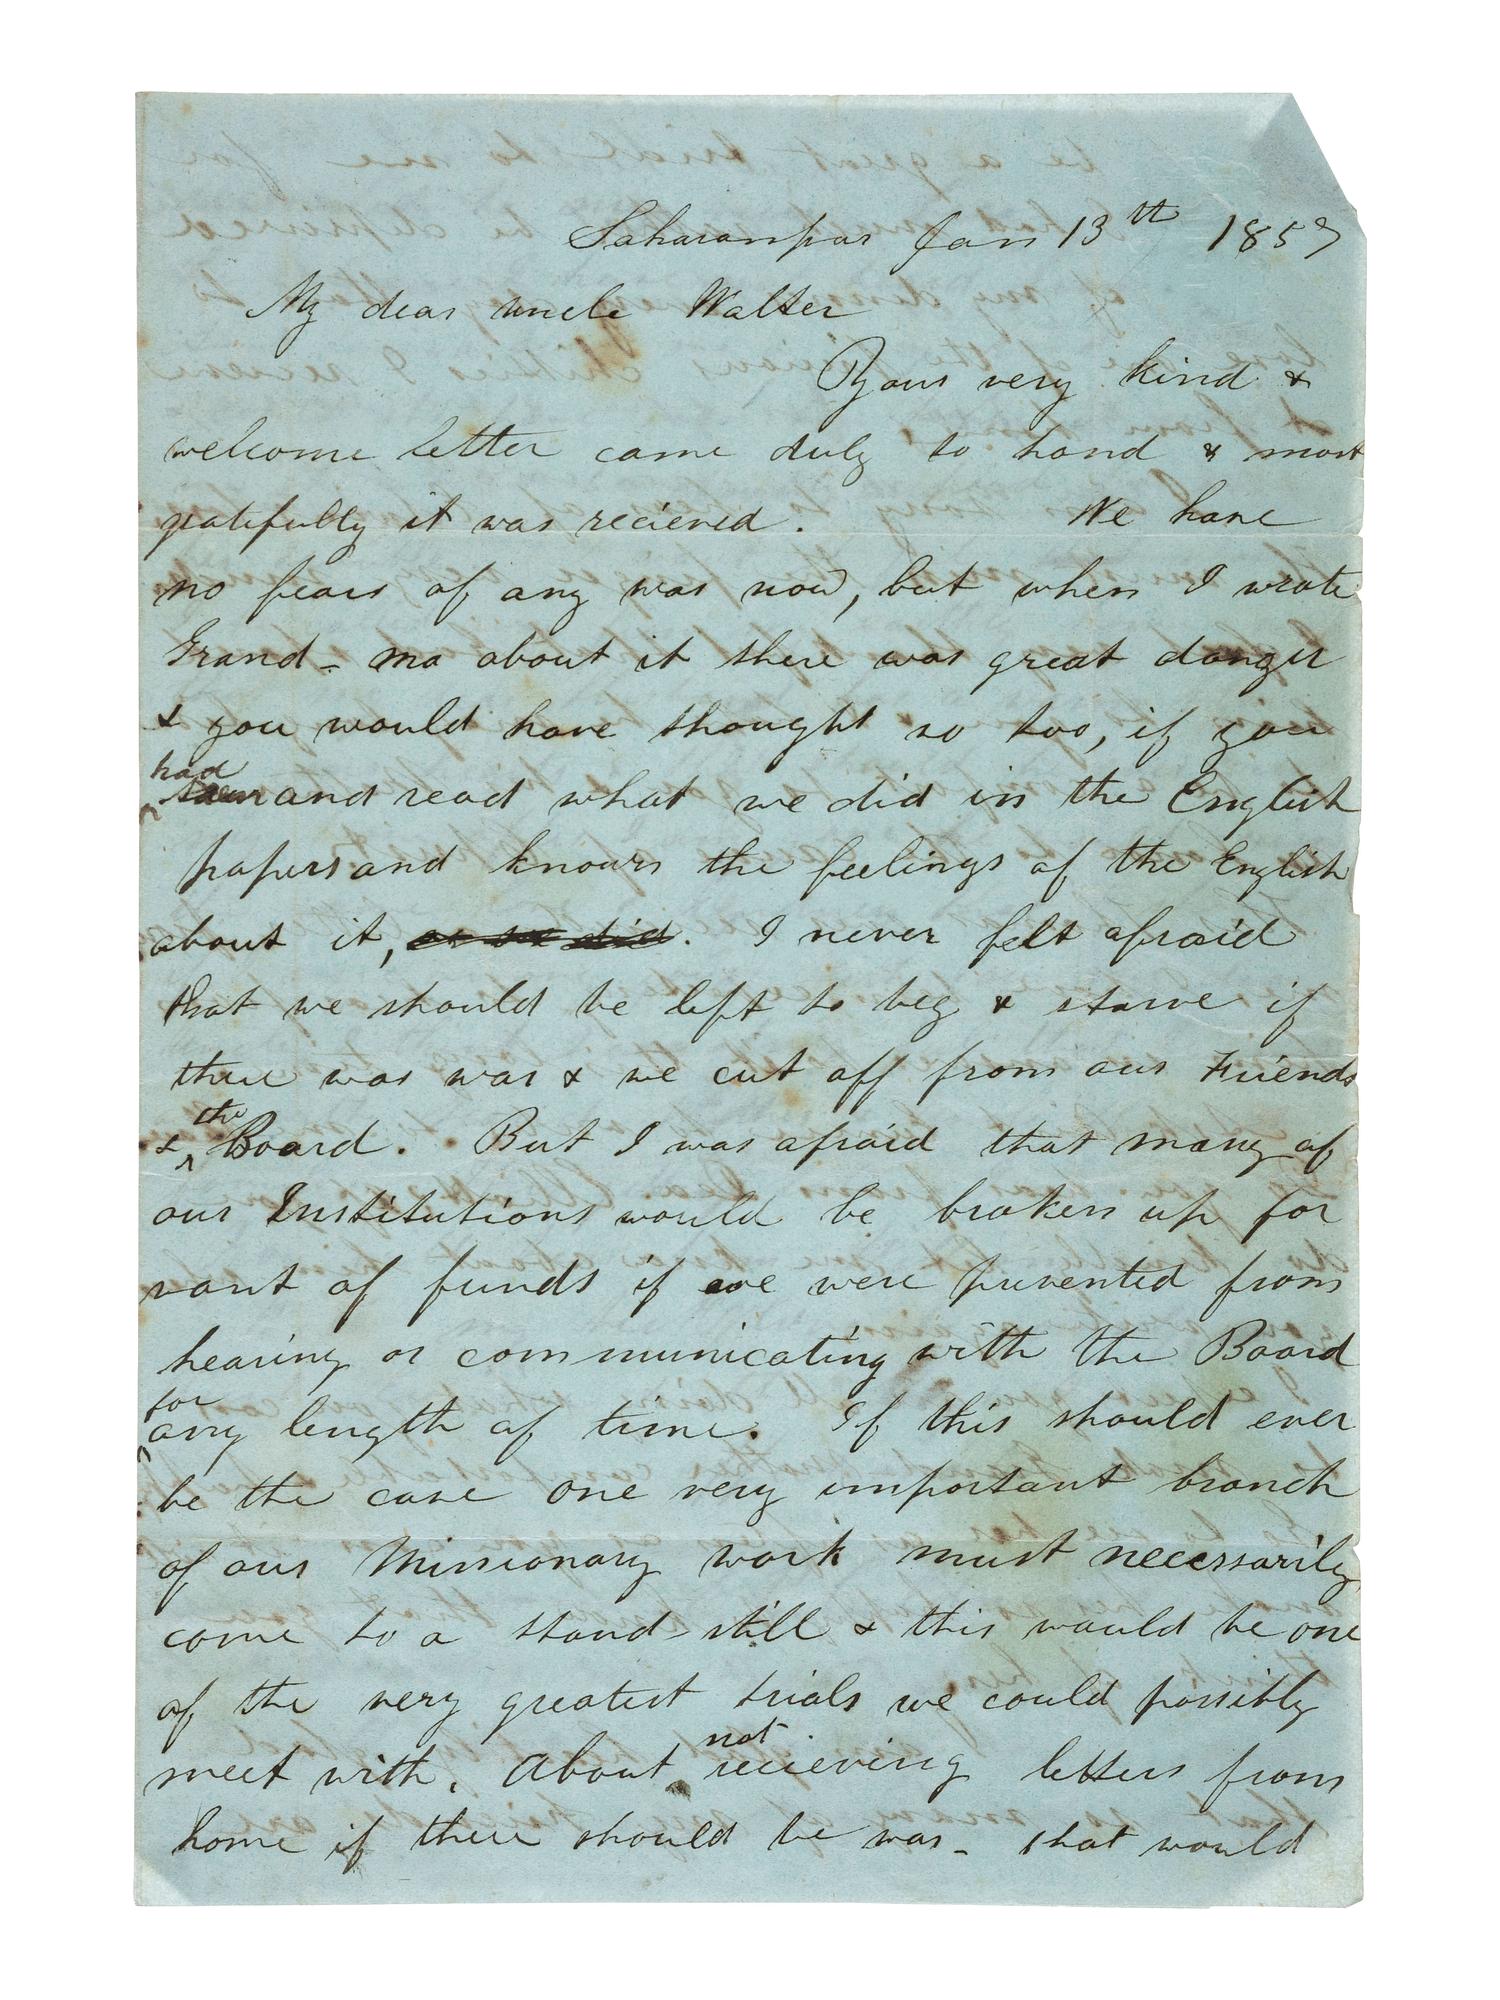 Saharanpur Jan 13th 1857
My dear uncle Walter
Your very kind &
welcome letter came duly to hand & most
gratefully it was recieved. We have
no fears of any war now, but when I wrote
Grand-ma about it there was great danger
& you would have thought so too, if you
had
and read what we did in the English
papers and known the feelings of the English
about it, or we did. I never felt afraid
that we should be left to beg & starve if
there was war & we cut off from our Friends
& the Board. But I was afraid that many of
our Institutions would be broken up for
want of funds if we were prevented from
hearing or communicating with the Board
for
any length of time. If this should ever
be the case one very important branch
of our Missionary work must necessarily
come to a stand still & this would be one
of the very greatest trials we could possibly
meet with. About not recieving letters from
home if there should be war - that would